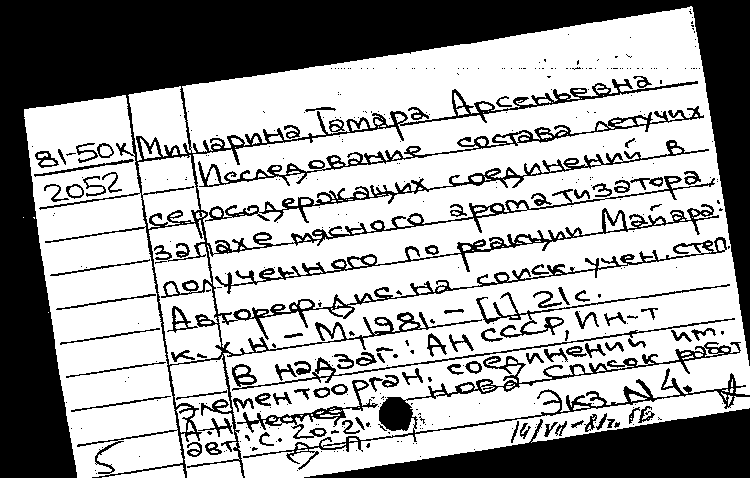 81-50к Мишарина, Тамара Арсеньевна.
2052 Исследование состава летучих
серосодержащих соединений в
запахе мясного ароматизатора,
полученного по реакции Майара:
Автореф. дис. на соиск. учен. степ.
к. х. н. - М., 1981. - [1], 21 с.
В надзаг.: АН СССР, Ин-т
элементоорган. соединений им.
А.Н. Несмеянова. Список работ
авт.: с. 20-21. Экз. N 4.
5 ДСП. 14/VII-81г.